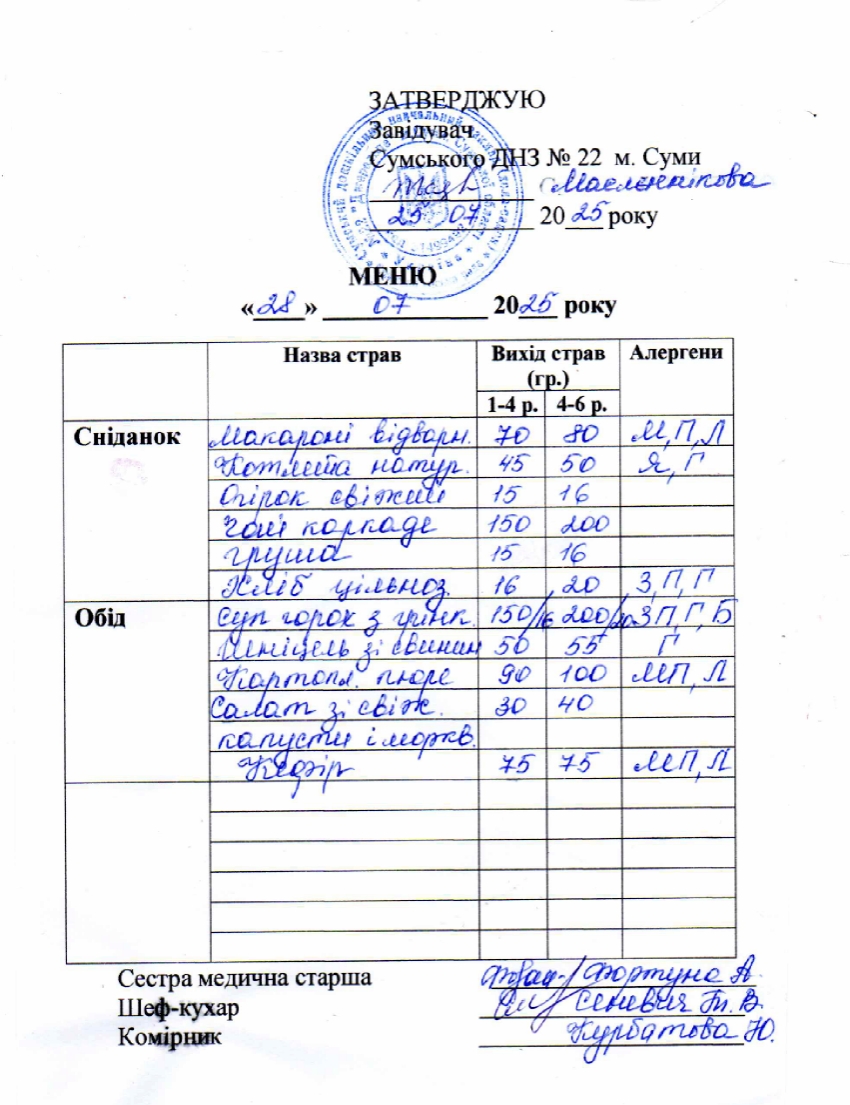 ЗАТВЕРДЖУЮ
Завідувач
Сумського ДНЗ № 22 м. Суми
Масленнікова
25 07 2025 року
МЕНЮ
«28» 07 2025 року
Назва страв Вихід страв (гр.) Алергени
1-4 р. 4-6 р.
Сніданок Макароні відварн. 70 80 М,П,Л
Котлета натур. 45 50 Я, Г
Огірок свіжий 15 16
Чай каркаде 150 200
груша 15 16
Хліб цільноз. 16 20 З,П,Г
Обід Суп горох з грінк. 150/16 200/20 З П,Г,Б
Шніцель зі свинин 50 55 Г
Картопл. пюре 90 100 МП,Л
Салат зі свіж. 30 40
капусти і моркв.
Кефір 75 75 МП,Л
Сестра медична старша Фортуна А
Шеф-кухар Сеневич Т. В.
Комірник Курбатова Ю.